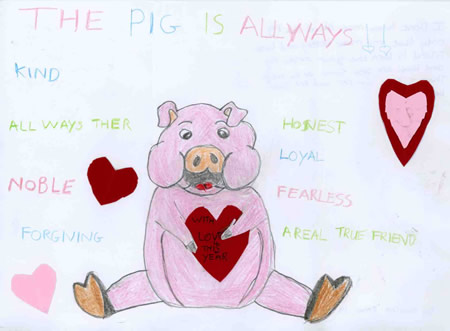 THE PIG IS ALLYWAYS
KIND
ALL WAYS THER
NOBLE
FORGIVING
HONEST
LOYAL
FEARLESS
A REAL TRUE FRIEND
WITH
LOVE
THIS
YEAR